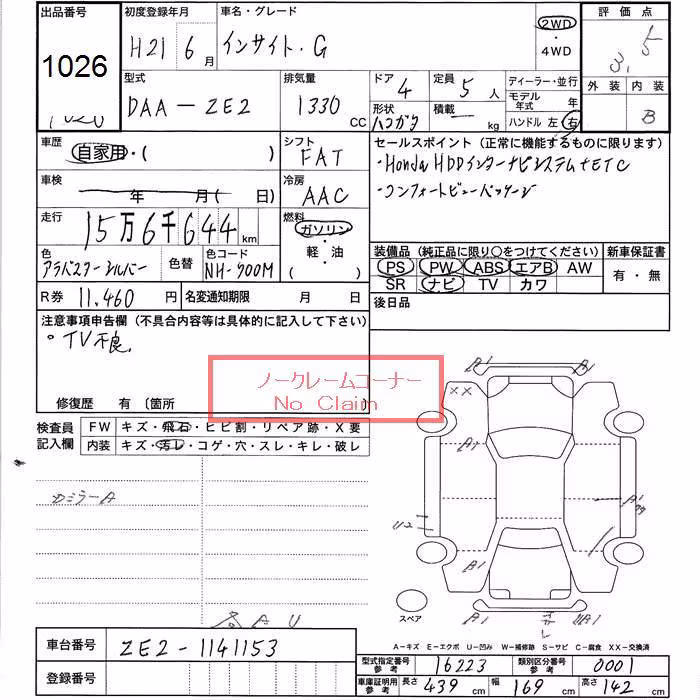 出品番号 初度登録年月 車名・グレード 評価点
1026 H21 6月 インサイト・G 2WD ・4WD 3.5
型式 排気量 ドア 4 定員 5人 ディーラー・並行 外装 内装
DAA-ZE2 1330 CC 形状 ハコガタ 積載 - kg モデル年式 年 B
ハンドル 左 右
車歴 シフト セールスポイント(正常に機能するものに限ります)
自家用・( ) FAT ・Honda HDDインターナビシステム+ETC
車検 年 月( 日) 冷房 AAC ・コンフォートビューパッケージ
走行 15万6千644km 燃料 ガソリン・軽・油( )
色 アラバスターシルバー 色替 色コード NH-700M
装備品(純正品に限り○をつけてください) 新車保証書
PS PW ABS エアB AW 有・無
SR ナビ TV カワ
R券 11,460円 名変通知期限 月 日 後日品
注意事項申告欄(不具合内容等は具体的に記入して下さい)
・TV不良
ノークレームコーナー
No Claim
修復歴 有〔箇所
検査員記入欄 FW キズ・飛石・ヒビ割・リペア跡・X要
内装 キズ・汚レ・コゲ・穴・スレ・キレ・破レ
A1 A1
XX
A1
A1
U2
A1 A1
UA1
ミラーA
A U
スペア
A-キズ E-エクボ U-凹み W-補修跡 S-サビ C-腐食 XX-交換済
車台番号 ZE2-1141153
型式指定番号参考 16223 類別区分番号参考 0001
登録番号
車庫証明用参考 長さ 439cm 幅 169cm 高さ 142cm